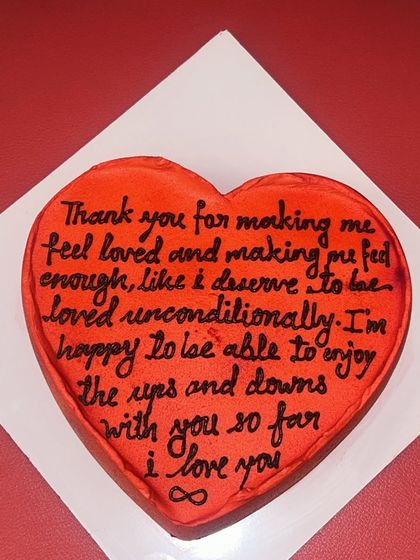 Thank you for making me
feel loved and making me feel
enough, like i deserve to be
loved unconditionally. I'm
happy to be able to enjoy
the ups and downs
with you so far
i love you
∞